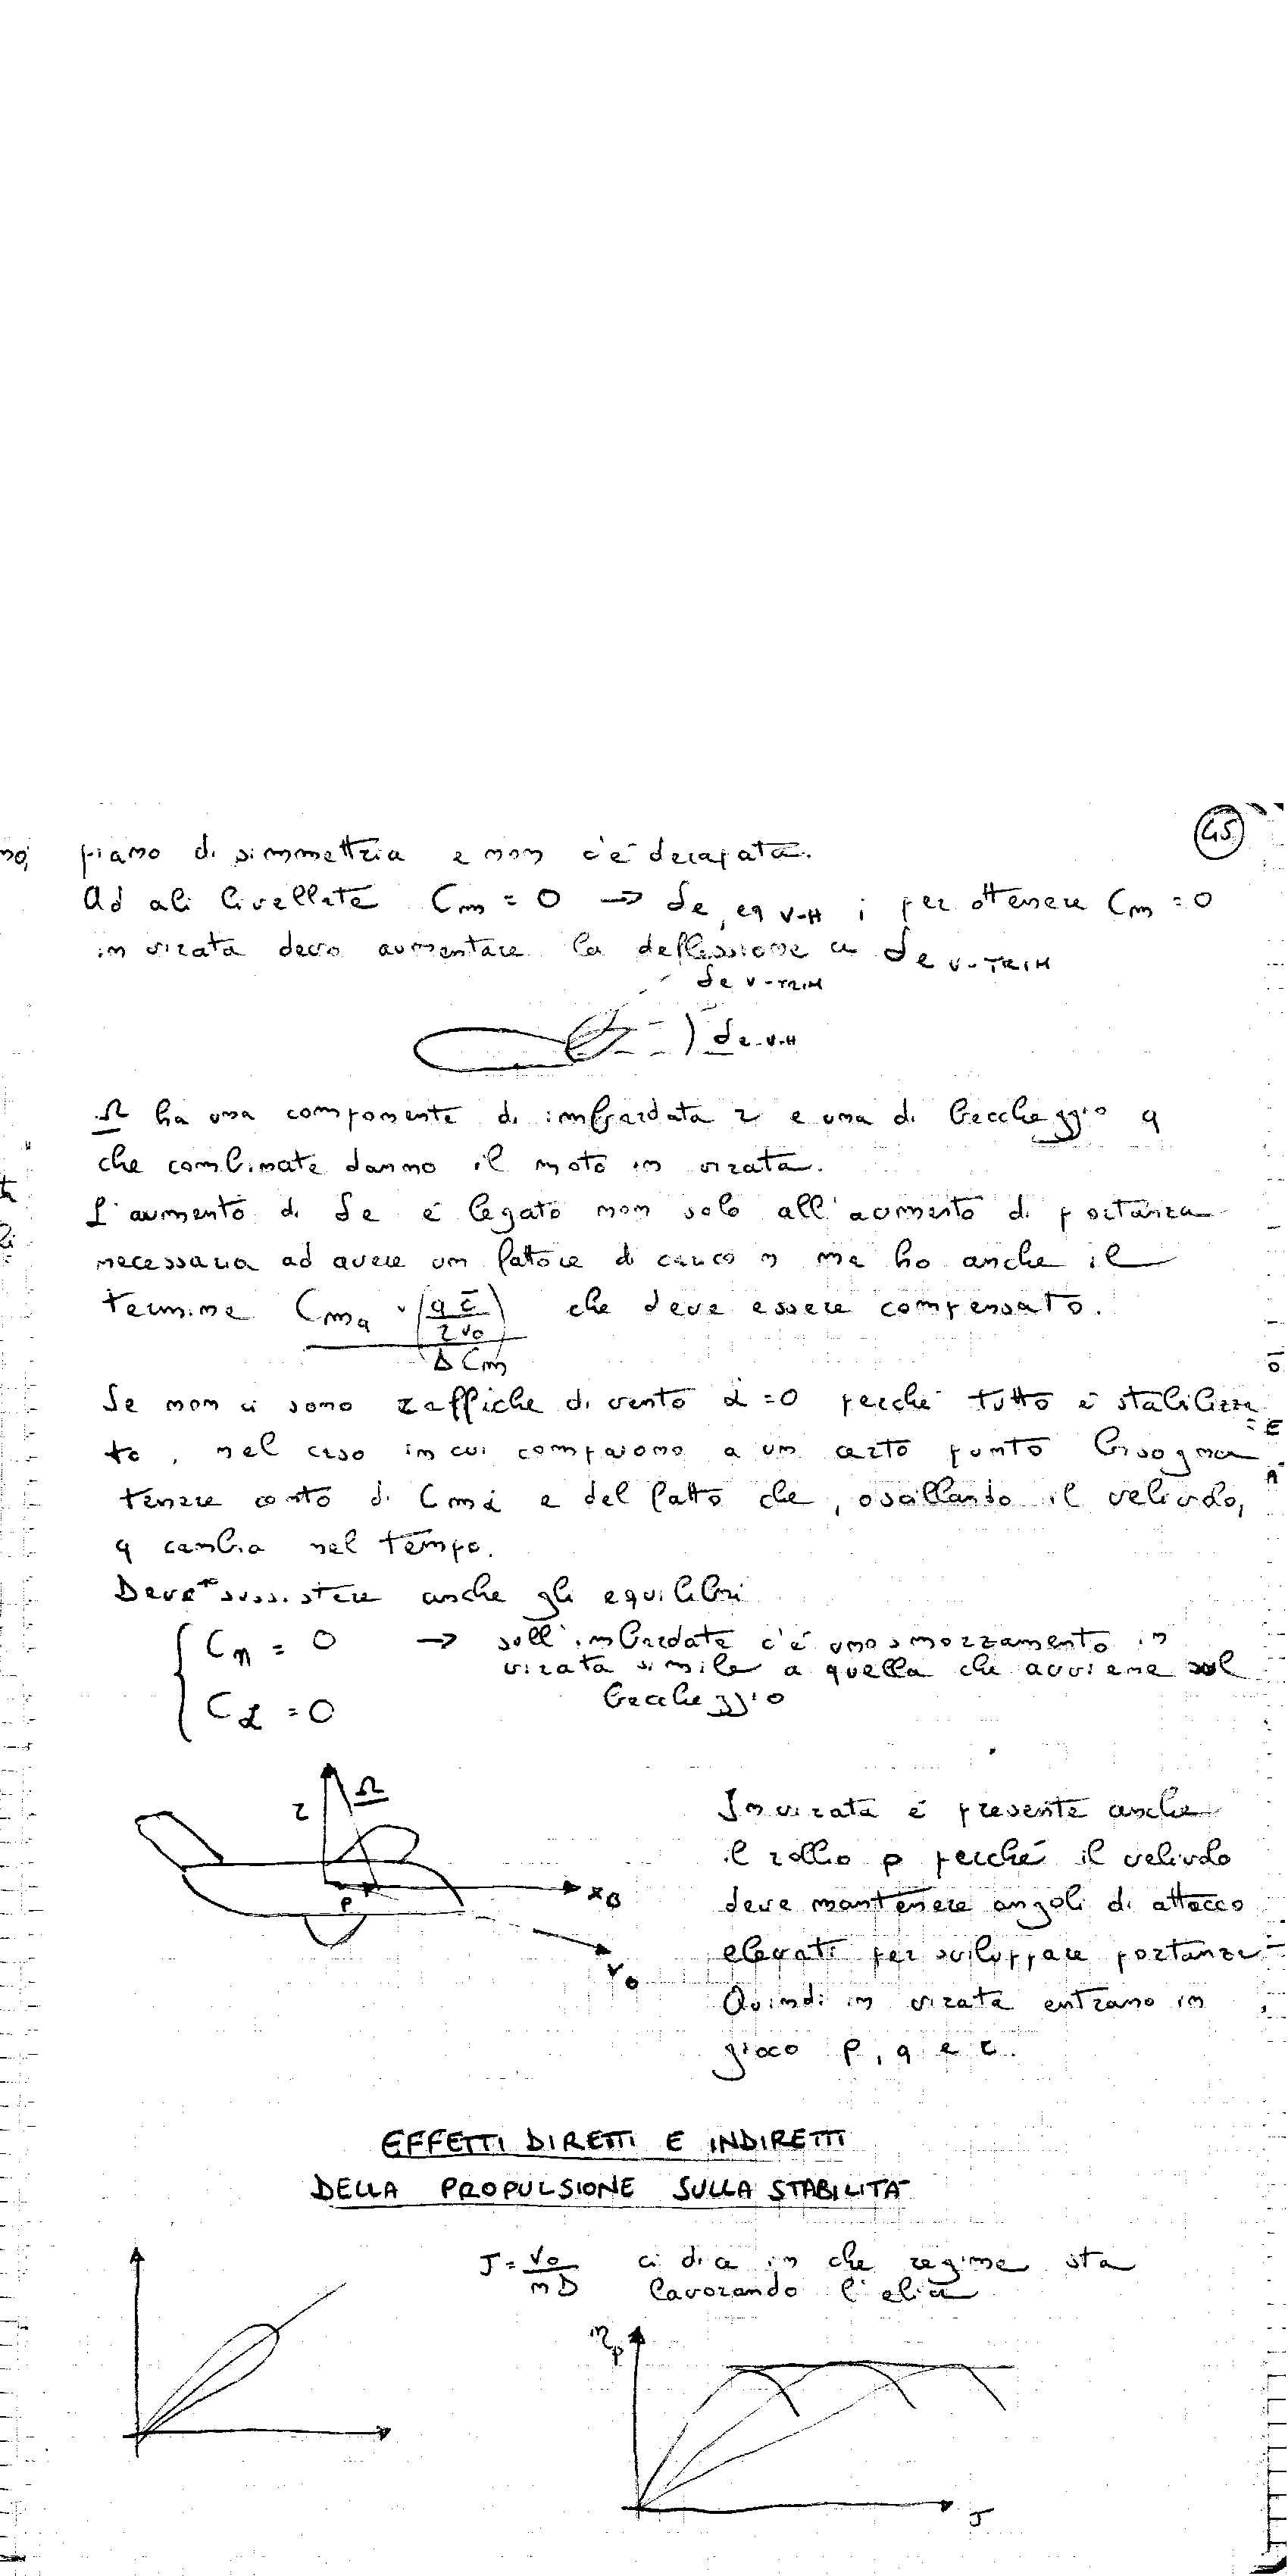 45
piano di simmettria e non c'é derapata.
Ad ali livellate Cm = 0 → δe, eq V-H ; per ottenere Cm = 0
in virata devo aumentare la deflessione a δe V-TRIM
δe V-TRIM
δe-V-H
Ω ha una componente di imbardata r e una di beccheggio q
che combinate danno il moto in virata.
L'aumento di δe é legato non solo all'aumento di portanza
necessaria ad avere un fattore di carico n ma ho anche il
termine Cmq · (q c̄ / 2 V0) che deve essere compensato.
Δ Cm
Se non ci sono raffiche di vento α̇ = 0 perché tutto é stabilizza
to, nel caso in cui compaiono a un certo punto bisogna
tenere conto di Cmα̇ e del fatto che, oscillando il velivolo,
q cambia nel tempo.
Deve sussistere anche gli equilibri
Cn = 0 → sull'imbardata c'é uno smorzamento in
virata simile a quella che avviene sul
beccheggio
Cℒ = 0
r Ω
P XB
V0
In virata é presente anche
il rollio p perché il velivolo
deve mantenere angoli di attacco
elevati per sviluppare portanza
Quindi in virata entrano in
gioco p, q e r.
EFFETTI DIRETTI E INDIRETTI
DELLA PROPULSIONE SULLA STABILITA'
J = V0 / nD ci dice in che regime sta
lavorando l'elica
ηp
J